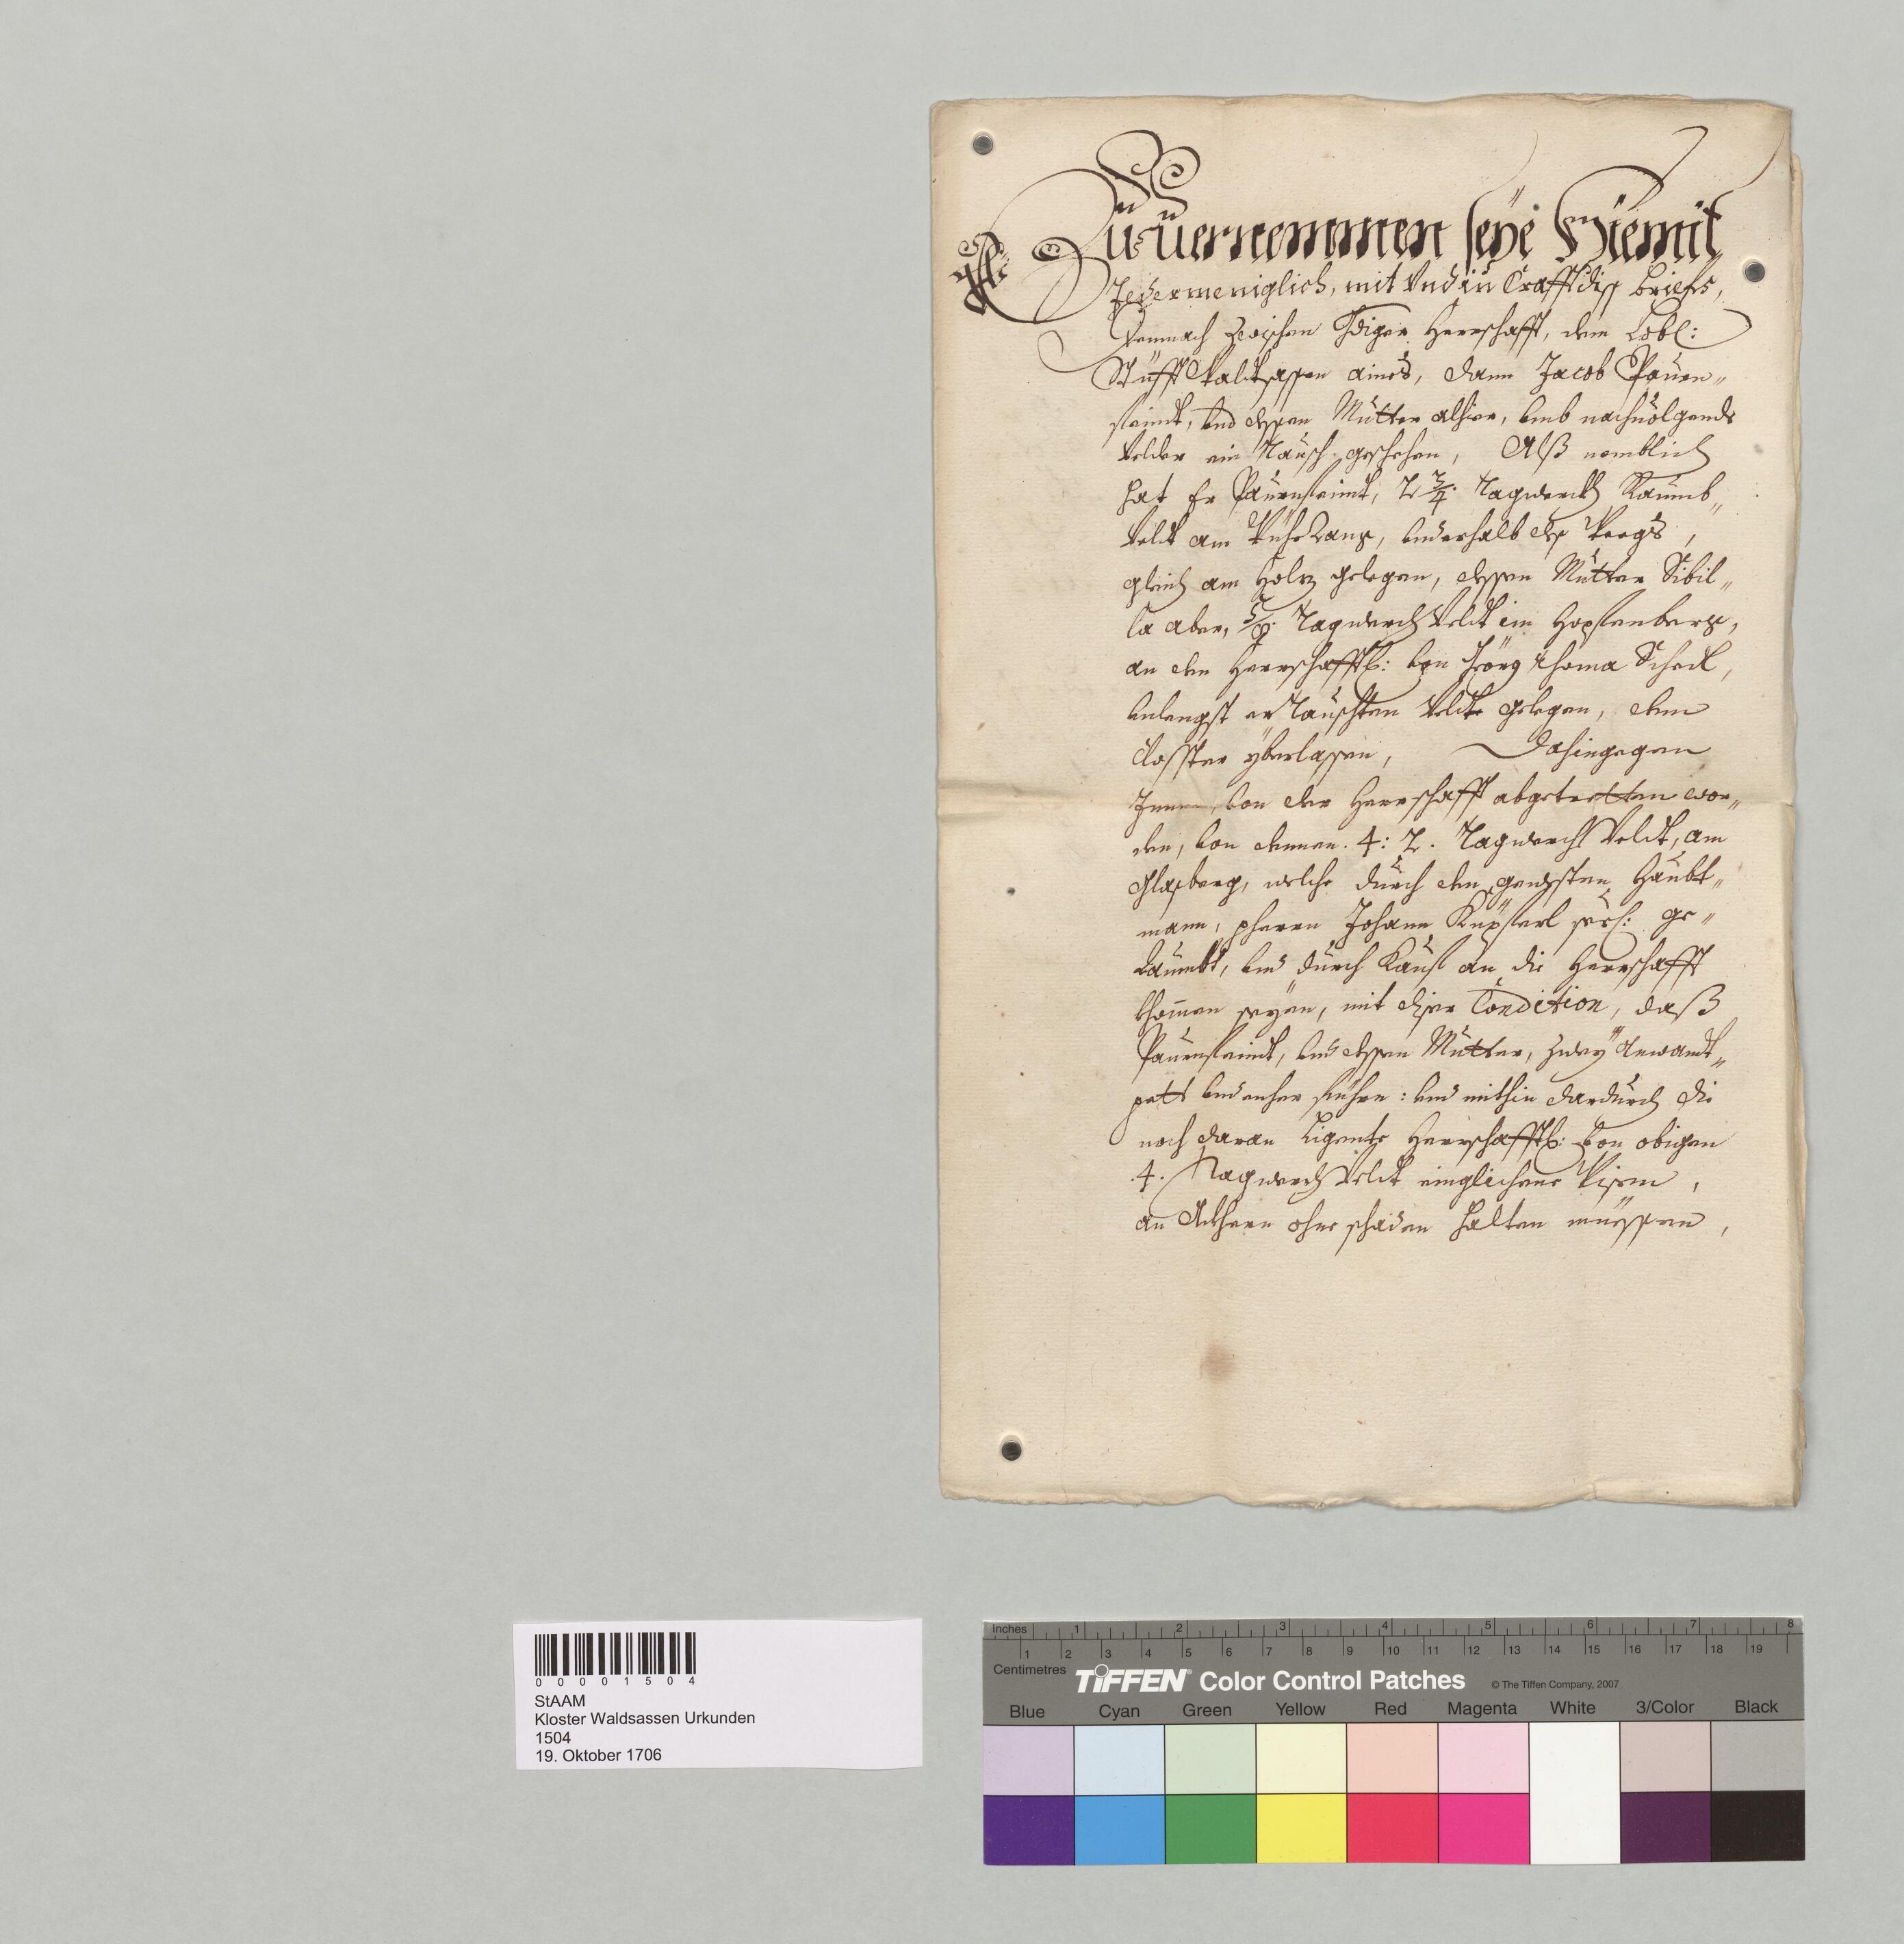 Zuuernemmen seye Hiemit
Jedermeniglich, mit Vnd in Crafft diss briefs,
demnach zwischen Gdiger Herrschafft, dem Lobl:
Stüfft Waldtsassen aines, dann Jacob Pauern-
feindt, vnd dessen Mutter alhier, vmb nachuolgende
Velder ein Tausch geschehen, Alß nemblich
hat Er Paurnfeindt, 2 3/4. Tagwerch Raumb-
Veldt am, vnderhalb dess Weegs,
gleich am Holz gelegen, dessen Mutter Sibil-
la aber, 5/8. Tagwerch Veldt im Hopfenberg,
an dem Herrschafftl: von Geörg Thoma Scheckl,
vnlengst erTauschten Veldt gelegen, dem
Closster yberlassen, Dahingegen
Jnnen, von der Herrschafft abgetretten wor-
den, von denen. 4: 2. Tagwerch Veldt, am
Glasberg, welche durch den gewessten Haubt-
mann, herrn Johann Küpferl seel: ge-
Raumbt, vnd durch Kauf an die Herrschafft
khomen seyen, mit diser Condition, daß
Paurnfeindt, vnd dessen Mutter, zwey Anwandt-
pett vmbenher führen: vnd mithin dardurch die
noch daran ligente Herrschafftl: von obigen
.4. Tagwerch Veldt eingelichene Wisen,
an Äckhern ohne schaden halten müessen,
00001504
StAAM
Kloster Waldsassen Urkunden
1504
19. Oktober 1706
Inches 1 2 3 4 5 6 7 8
1 2 3 4 5 6 7 8 9 10 11 12 13 14 15 16 17 18 19
Centimetres
TIFFEN® Color Control Patches © The Tiffen Company, 2007
Blue Cyan Green Yellow Red Magenta White 3/Color Black